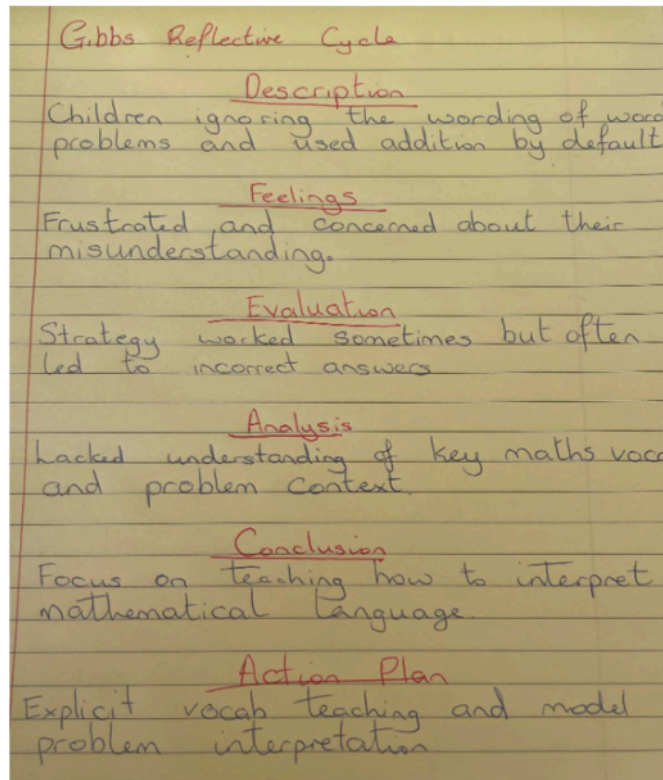 Gibbs Reflective Cycle
Description
Children ignoring the wording of word
problems and used addition by default
Feelings
Frustrated and concerned about their
misunderstanding.
Evaluation
Strategy worked sometimes but often
led to incorrect answers
Analysis
Lacked understanding of key maths voca
and problem context.
Conclusion
Focus on teaching how to interpret
mathematical language.
Action Plan
Explicit vocab teaching and model
problem interpretation